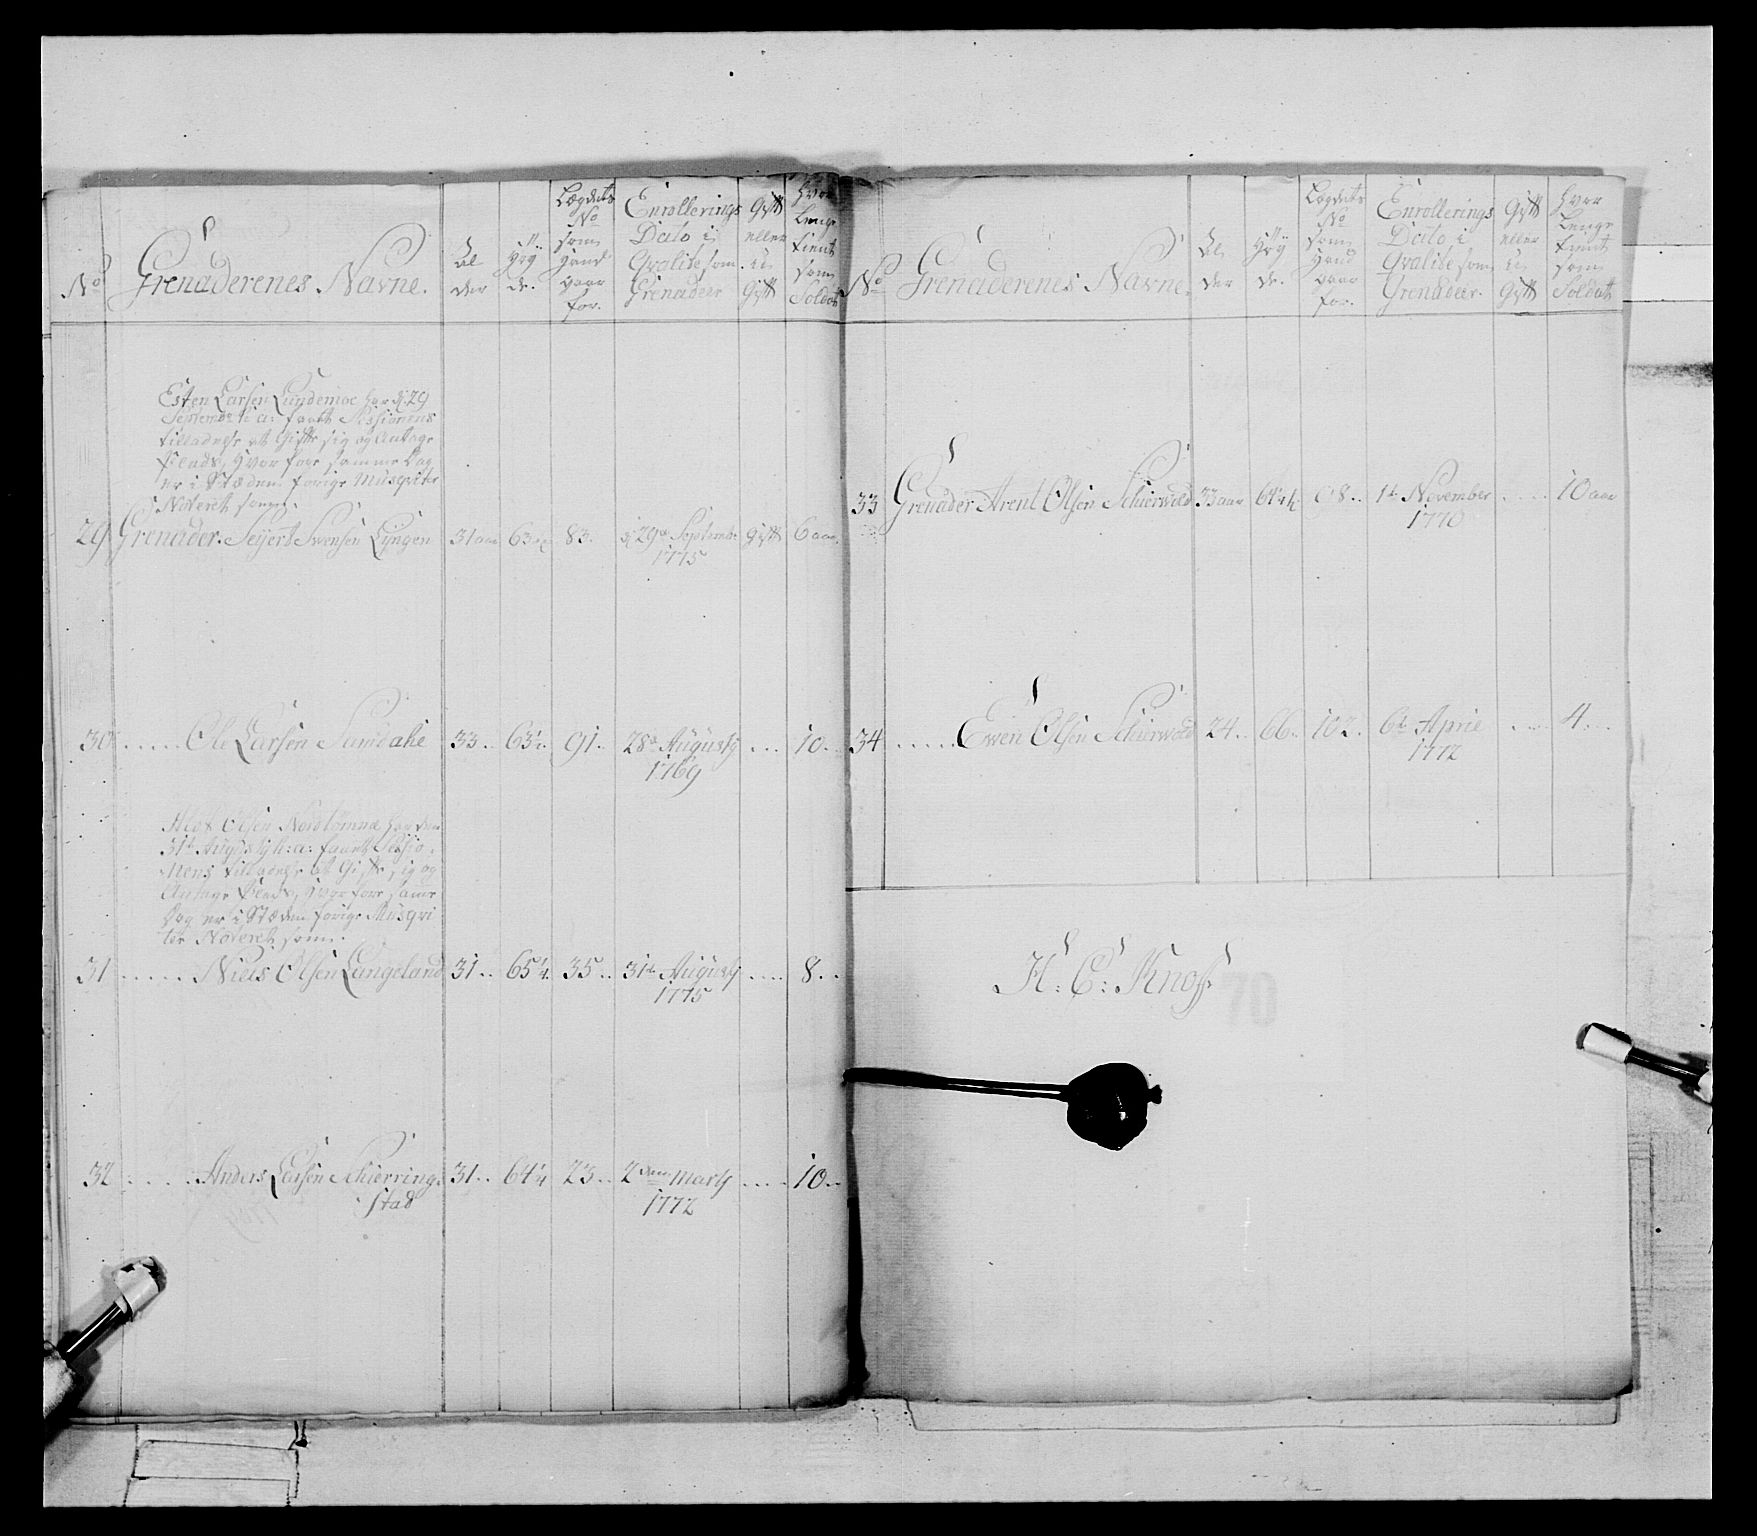 No Grenaderenes Navne. Al der Høÿ de. Lægdets No som Hand vaar for. Enrollerings Dato i Qvalite som Grenadeer Gift eller u Gift Hvor Lenge tient som Soldat
Esten Larsen Lundemoe har d: 29
Septembr h: a: faaet Sessionens
tilladelse at Gifte sig og Antage
Plads, hvor fore samme Dag
er i Stæden forige Musqviter
Noteret som.
29 Grenader. Sejert Svensen Lÿngen 31 aar 63 83. d 29de Septembr Gift 6 aar.
1775
30 Ole Larsen Sundahe 33.. 63½. 91.. 28de Augusty .... 10..
1769
Olsen Nordtømme har den
31te Augusty h: a: faaet Sessio-
nens tilladelse at Gifte sig og
Antage Plads, hvor fore samme
Dag er i Stæden forige Musqvi
ter Noteret som.
31 Niels Olsen Langeland 31.. 65¼. 35.. 31te Augusty .... 8..
1775
32 Anders Larsen Schierrings 31.. 64¼ 23.. 2den Marty .... 10..
stad 1772
No Grenaderenes Navne. Al der Høÿ de. Lægdets No som Hand vaar for. Enrollerings Dato i Qvalite som Grenadeer. Gift eller u Gift Hvor Lenge tient som Soldat
33 Grenader Arent Olsen Schierwold 33 aar 64 98.. 1te November .... 10 aar
1770
34 Ewen Olsen Schierwold 24.. 66.. 102. 6te Aprie .... 4..
1772
H: C: Knoff.
70